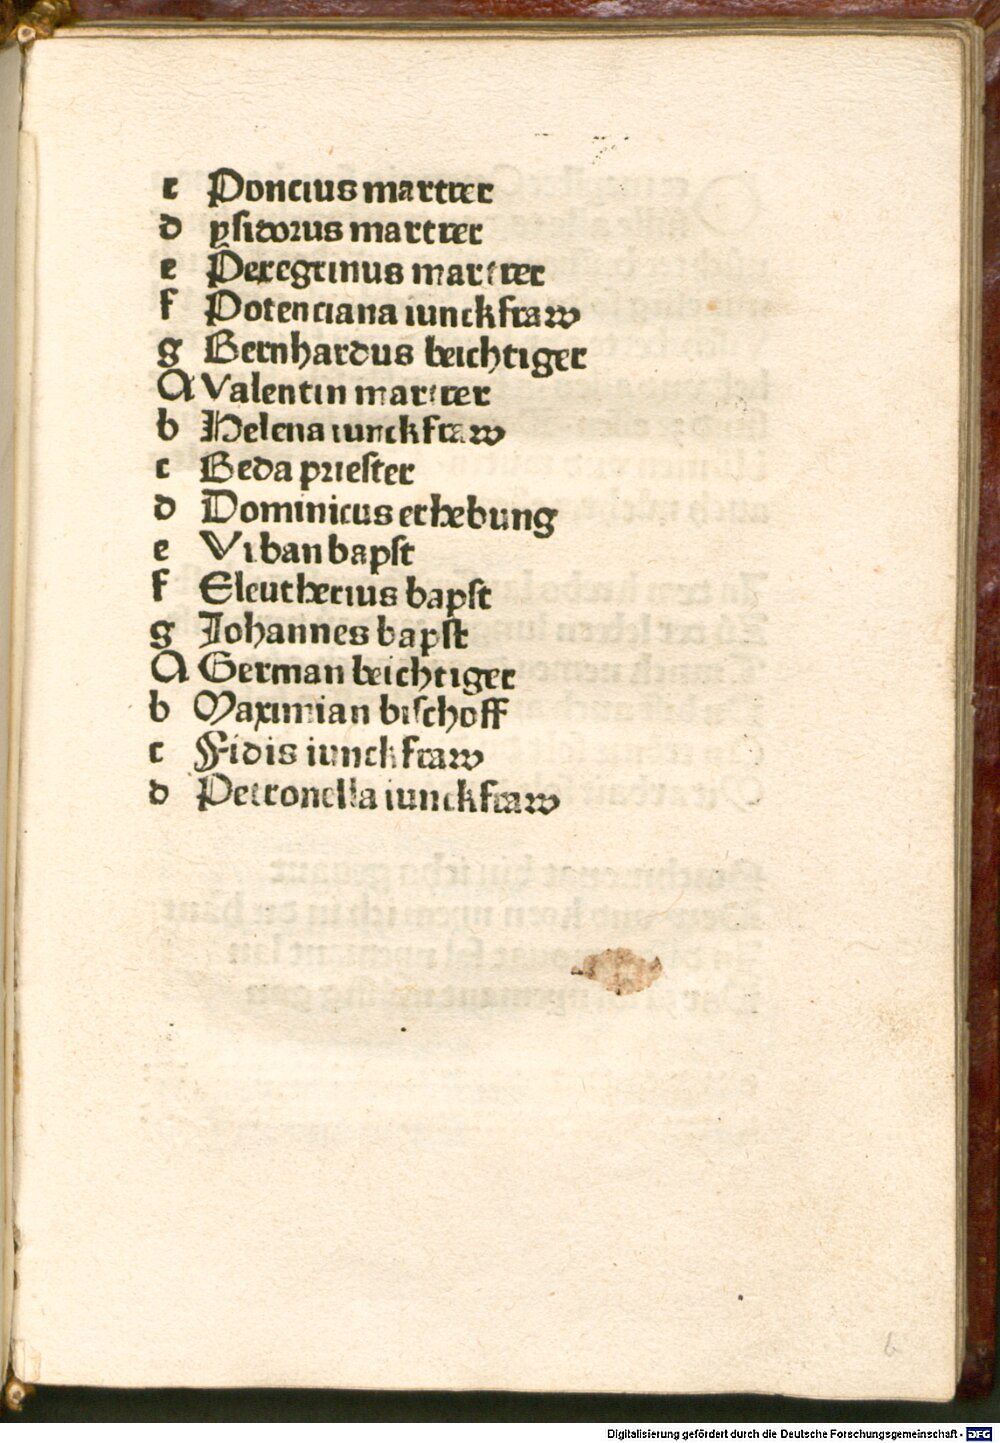 c Poncius martrer
d ysidorus martrer
e Peregrinus martrer
f Potenciana iunckfraw
g Bernhardus beichtiger
A Valentin martrer
b Helena iunckfraw
c Beda priester
d Dominicus erhebung
e Vrban bapst
f Eleutherius bapst
g Johannes bapst
A German beichtiger
b Maximian bischoff
c Fidis iunckfraw
d Petronella iunckfraw
6
Digitalisierung gefördert durch die Deutsche Forschungsgemeinschaft - DFG